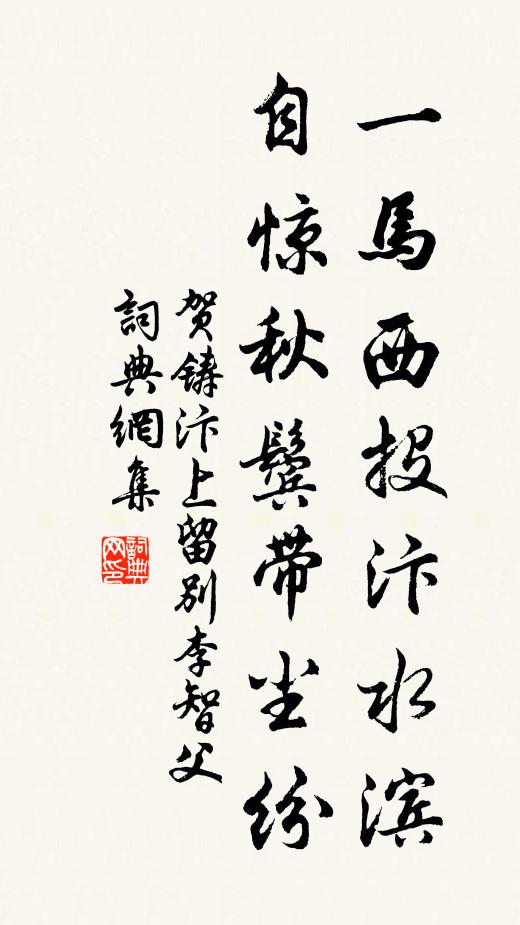 一馬西投汴水滨
自惊秋鬓带尘纷
贺鑄汴上留别李智父
詞典網集
詞典網印